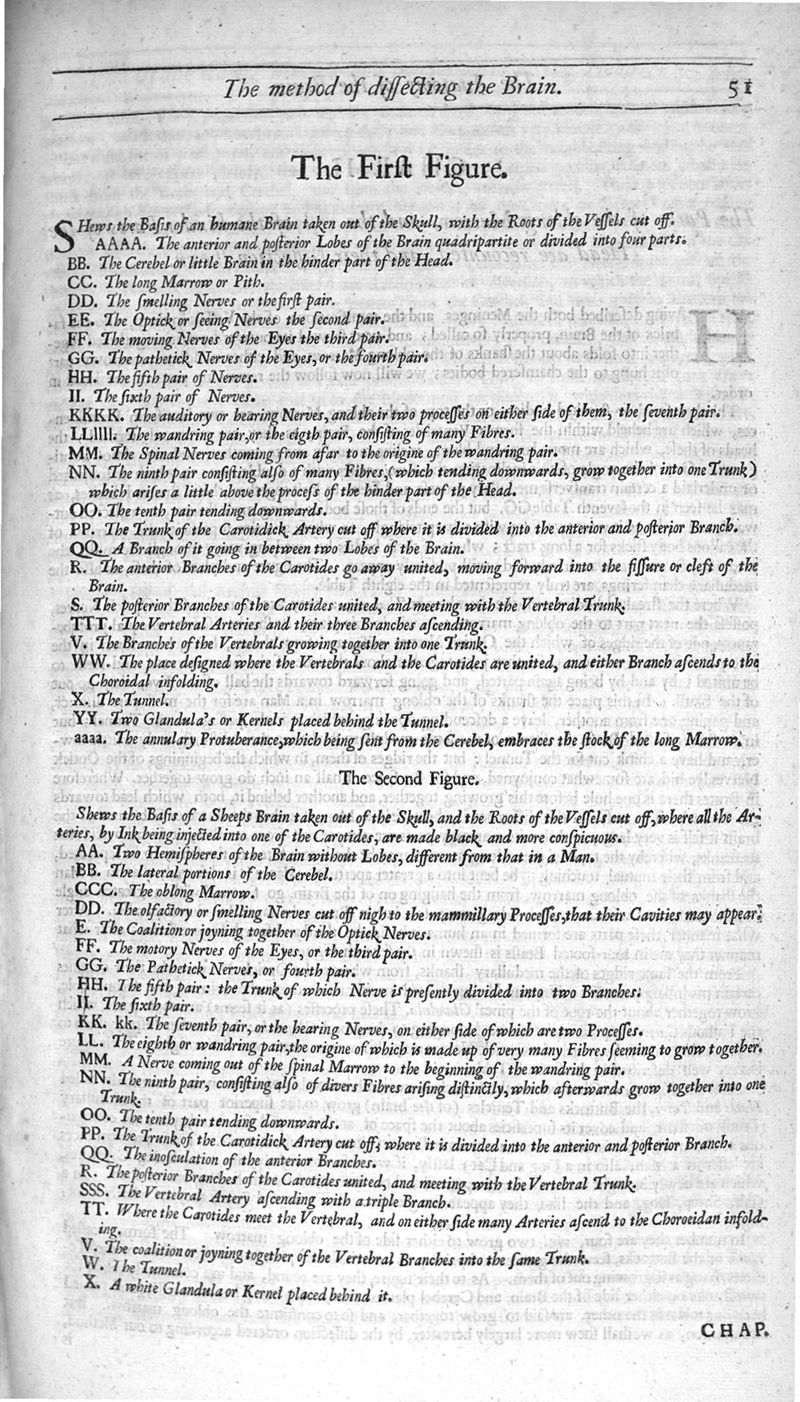 The method of diſſecting the Brain. 51
The Firſt Figure.
SHews the Baſis of an humane Brain taken out of the Skull, with the Roots of the Veſſels cut off.
AAAA. The anterior and poſterior Lobes of the Brain quadripartite or divided into four parts.
BB. The Cerebel or little Brain in the hinder part of the Head.
CC. The long Marrow or Pith.
DD. The ſmelling Nerves or the firſt pair.
EE. The Optick or ſeeing Nerves the ſecond pair.
FF. The moving Nerves of the Eyes the third pair.
GG. The pathetick Nerves of the Eyes, or the fourth pair.
HH. The fifth pair of Nerves.
II. The ſixth pair of Nerves.
KKKK. The auditory or hearing Nerves, and their two proceſſes on either ſide of them, the ſeventh pair.
LLllll. The wandring pair, or the eigth pair, conſiſting of many Fibres.
MM. The Spinal Nerves coming from afar to the origine of the wandring pair.
NN. The ninth pair conſiſting alſo of many Fibres, (which tending downwards, grow together into one Trunk)
which ariſes a little above the proceſs of the hinder part of the Head.
OO. The tenth pair tending downwards.
PP. The Trunk of the Carotidick Artery cut off where it is divided into the anterior and poſterior Branch.
QQ. A Branch of it going in between two Lobes of the Brain.
R. The anterior Branches of the Carotides go away united, moving forward into the fiſſure or cleft of the
Brain.
S. The poſterior Branches of the Carotides united, and meeting with the Vertebral Trunk.
TTT. The Vertebral Arteries and their three Branches aſcending.
V. The Branches of the Vertebrals growing together into one Trunk.
WW. The place deſigned where the Vertebrals and the Carotides are united, and either Branch aſcends to the
Choroidal infolding.
X. The Tunnel.
YY. Two Glandula's or Kernels placed behind the Tunnel.
aaaa. The annulary Protuberance, which being ſent from the Cerebel, embraces the ſtock of the long Marrow.
The Second Figure.
Shews the Baſis of a Sheeps Brain taken out of the Skull, and the Roots of the Veſſels cut off, where all the Ar-
teries, by Ink being injected into one of the Carotides, are made black and more conſpicuous.
AA. Two Hemiſpheres of the Brain without Lobes, different from that in a Man.
BB. The lateral portions of the Cerebel.
CCC. The oblong Marrow.
DD. The olfactory or ſmelling Nerves cut off nigh to the mammillary Proceſſes, that their Cavities may appear.
E. The Coalition or joyning together of the Optick Nerves.
FF. The motory Nerves of the Eyes, or the third pair.
GG. The Pathetick Nerves, or fourth pair.
HH. The fifth pair: the Trunk of which Nerve is preſently divided into two Branches.
II. The ſixth pair.
KK. kk. The ſeventh pair, or the hearing Nerves, on either ſide of which are two Proceſſes.
LL. The eighth or wandring pair, the origine of which is made up of very many Fibres ſeeming to grow together.
MM. A Nerve coming out of the ſpinal Marrow to the beginning of the wandring pair.
NN. The ninth pair, conſiſting alſo of divers Fibres ariſing diſtinctly, which afterwards grow together into one
Trunk.
OO. The tenth pair tending downwards.
PP. The Trunk of the Carotidick Artery cut off, where it is divided into the anterior and poſterior Branch.
QQ. The inoſculation of the anterior Branches.
R. The poſterior Branches of the Carotides united, and meeting with the Vertebral Trunk.
SSS. The Vertebral Artery aſcending with a triple Branch.
TT. Where the Carotides meet the Vertebral, and on either ſide many Arteries aſcend to the Choroeidan infold-
ing.
V. The coalition or joyning together of the Vertebral Branches into the ſame Trunk.
W. The Tunnel.
X. A white Glandula or Kernel placed behind it.
CHAP.